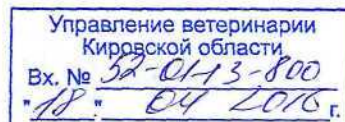 Управление ветеринарии
Кировской области
Вх. № 52-01-13-800
"18" 04 2016 г.